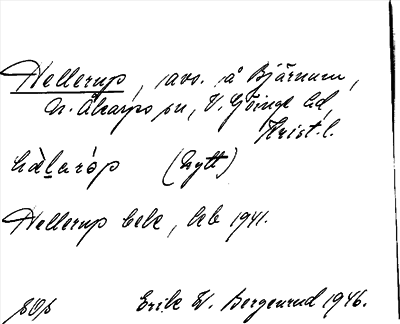 Hellerup, avs. å Bjärnum,
N. Åkarps sn, V. Göinge hd,
Krist. l.
hälaröp (nytt)
Hellerup bebe, leb 1941.
SOs Erik W. Bergenrud 1946.